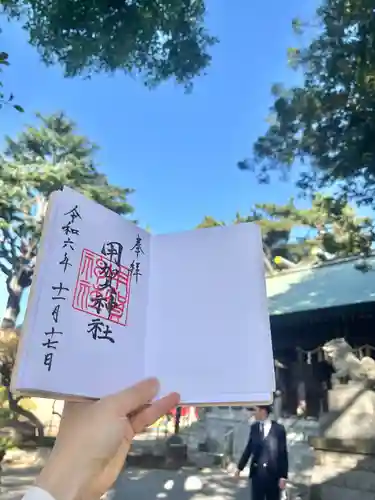 奉拝
用賀神社
令和六年 十一月十七日